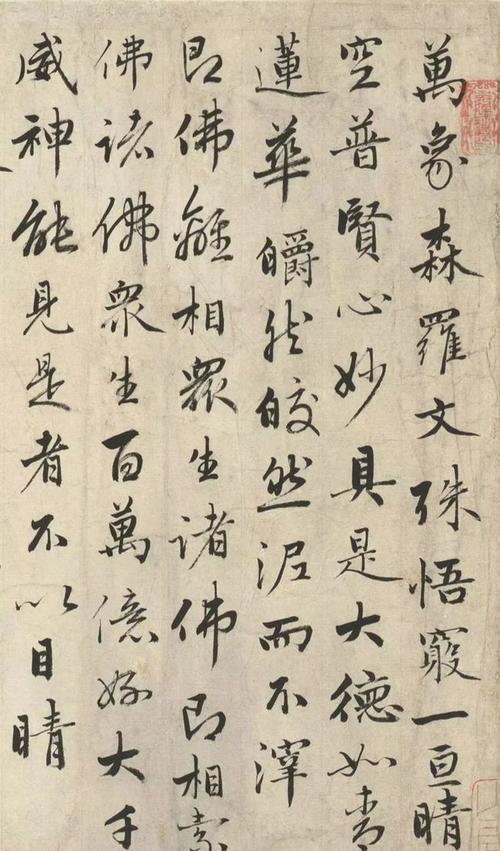 萬象森羅文殊悟竅一亘晴
空普賢心妙具是大德如青
蓮華皭然皎然泥而不滓
即佛離相眾生諸佛即相索
佛諸佛眾生百萬億姟大千
威神能見是者不以目睛